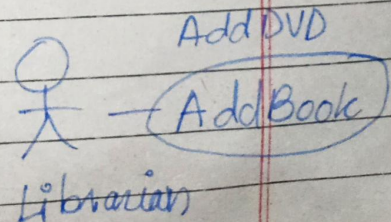 AddDVD
AddBook
Librarian